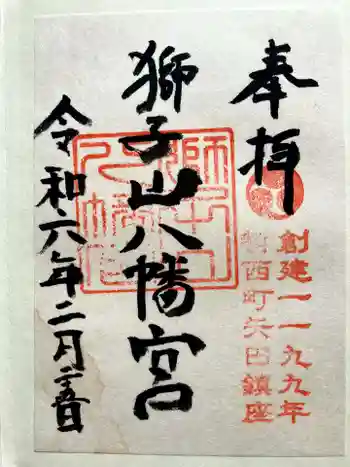 奉拝
創建一一九九年
西町矢田鎮座
獅子山八幡宮
令和六年二月二十五日